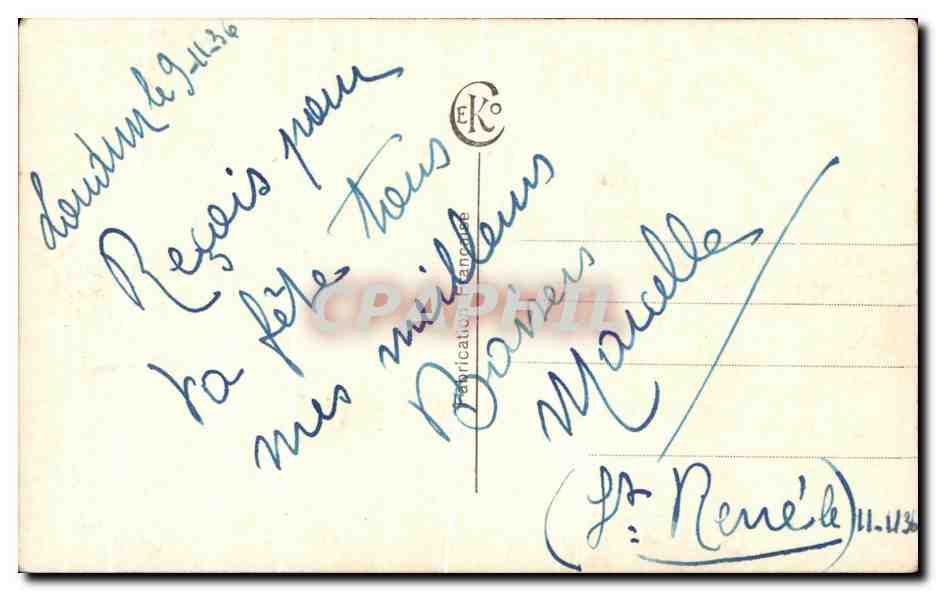 Loudun le 9-11-36
Reçois pour
ta fête tous
mes meilleurs
Baisers
Marcelle
(St. René le) 11-1136
CEKO
Fabrication Française
CPAPHIL